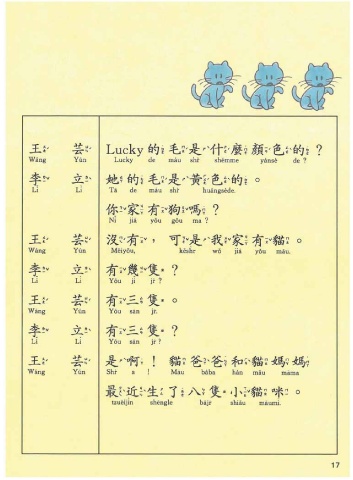 王 芸 Lucky 的毛是什麼顏色的?
Wáng Yún Lucky de máu shr̀ shémme yánsè de ?
李 立 她的毛是黃色的。
Lǐ Lì Tā de máu shr̀ huángsède.
你家有狗嗎?
Nǐ jiā yǒu gǒu ma ?
王 芸 沒有,可是我家有貓。
Wáng Yún Méiyǒu, kěshr̀ wǒ jiā yǒu māu.
李 立 有幾隻?
Lǐ Lì Yǒu jǐ jr̄ ?
王 芸 有三隻。
Wáng Yún Yǒu sān jr̄.
李 立 有三隻?
Lǐ Lì Yǒu sān jr̄ ?
王 芸 是啊!貓爸爸和貓媽媽
Wáng Yún Shr̀ a ! Māu bàba hàn māu māma
最近生了八隻小貓咪。
tzuèijìn shēngle bājr̄ shiǎu māumī.
17